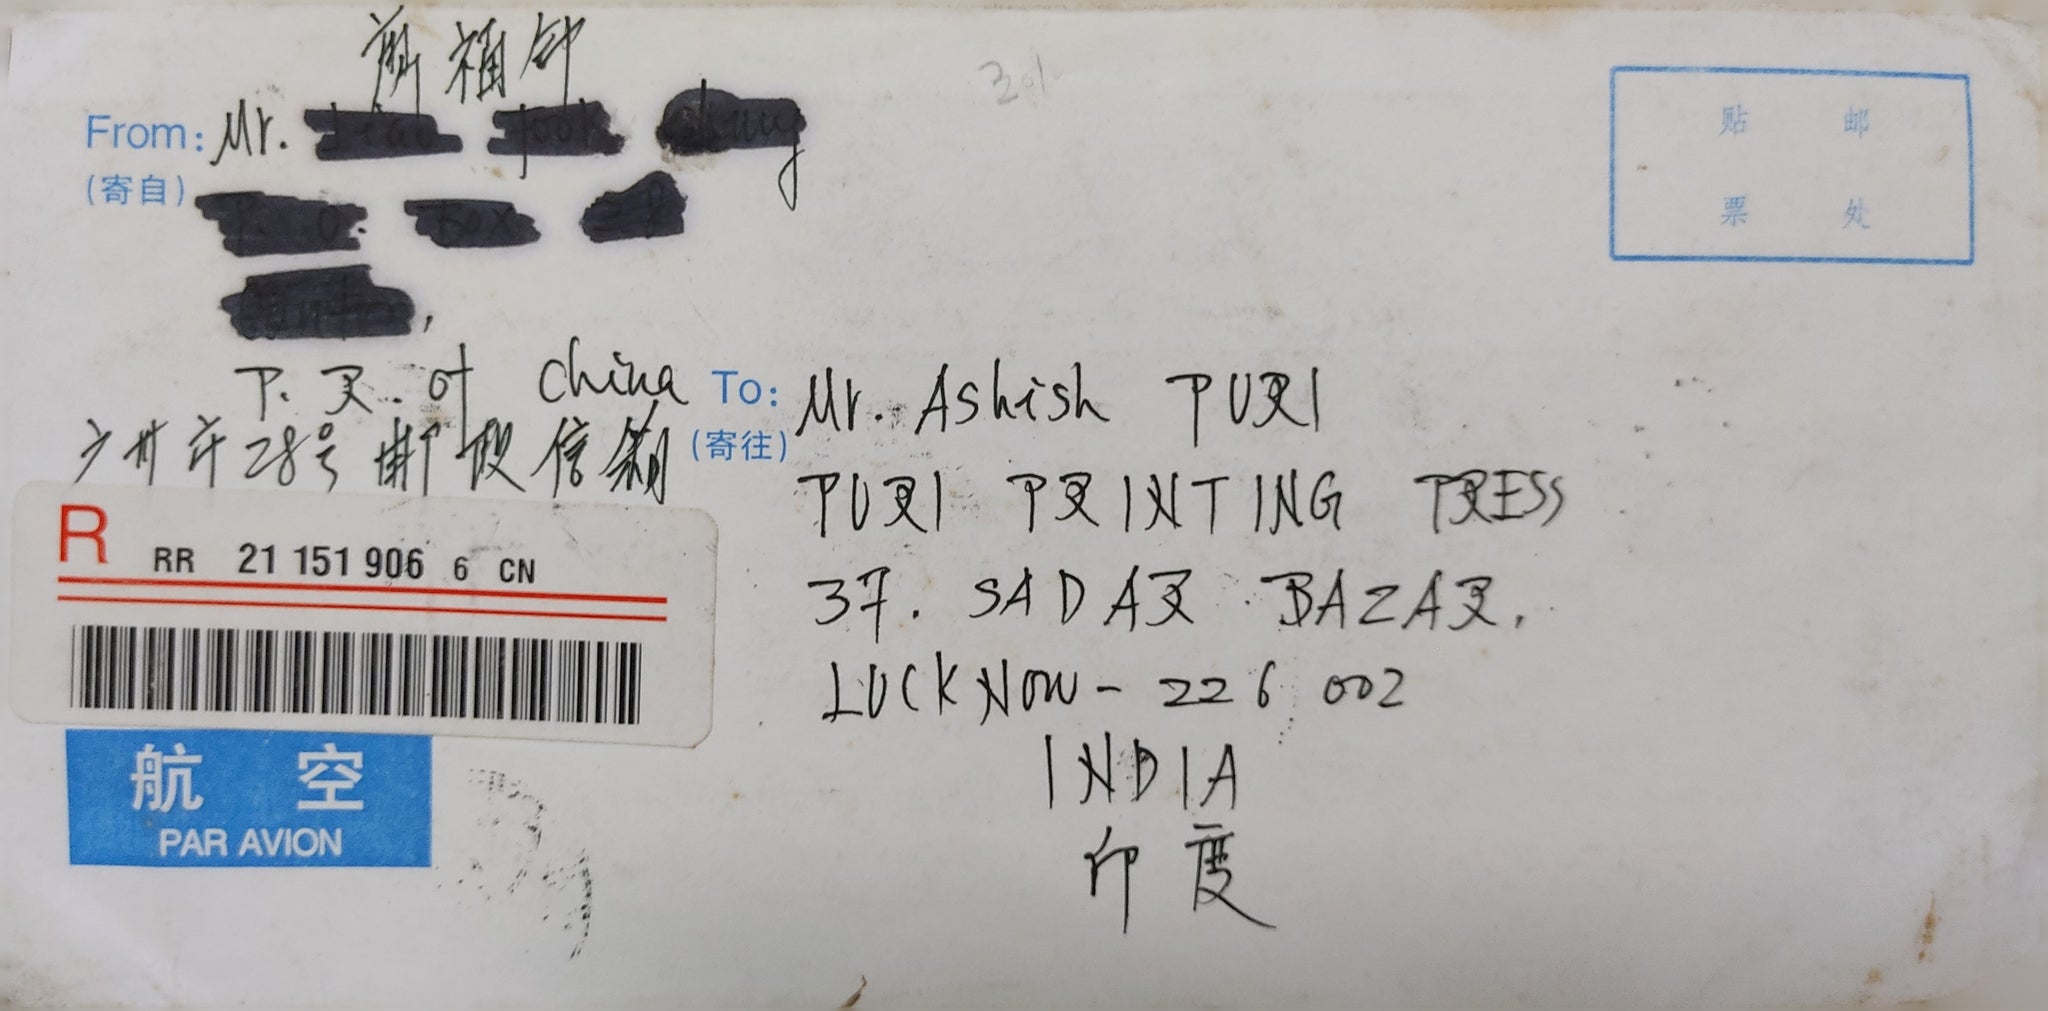 福钟
301
From: Mr.
(寄自)
P. R. of China
广州市28号邮政信箱
贴 邮
票 处
To: Mr. Ashish PURI
(寄往)
PURI PRINTING PRESS
37. SADAR BAZAR.
LUCKNOW - 226 002
INDIA
印度
R RR 21 151 906 6 CN
航 空
PAR AVION